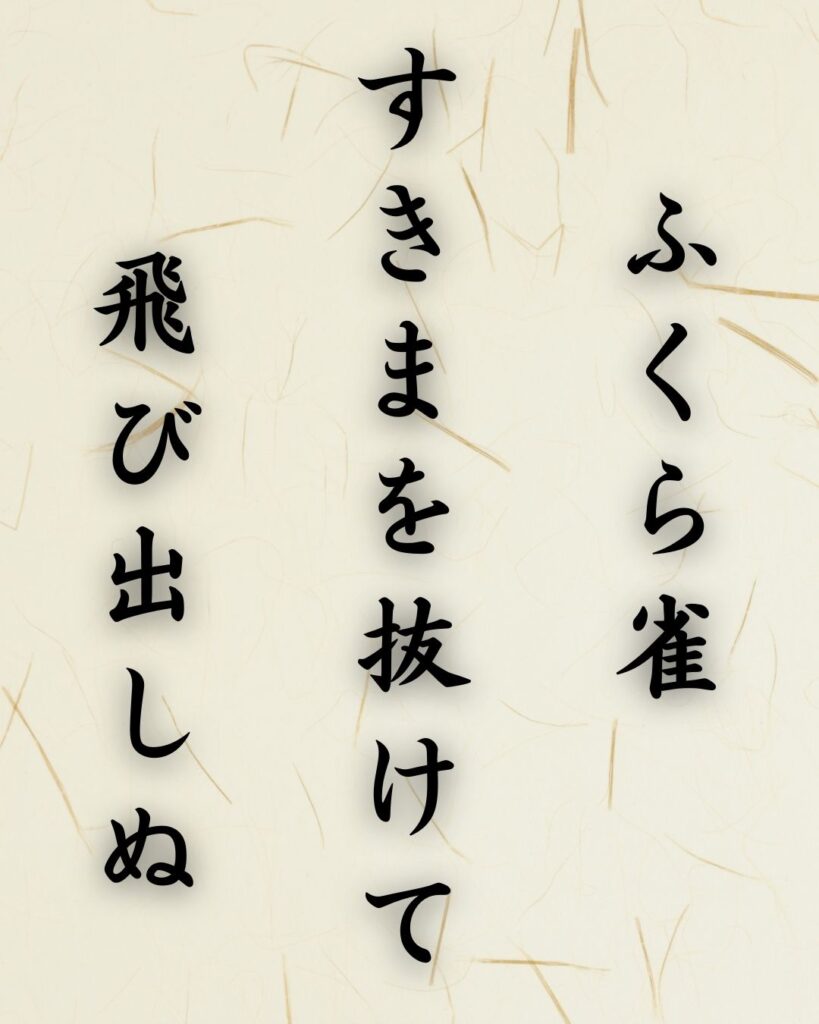 ふくら雀
すきまを抜けて
飛び出しぬ